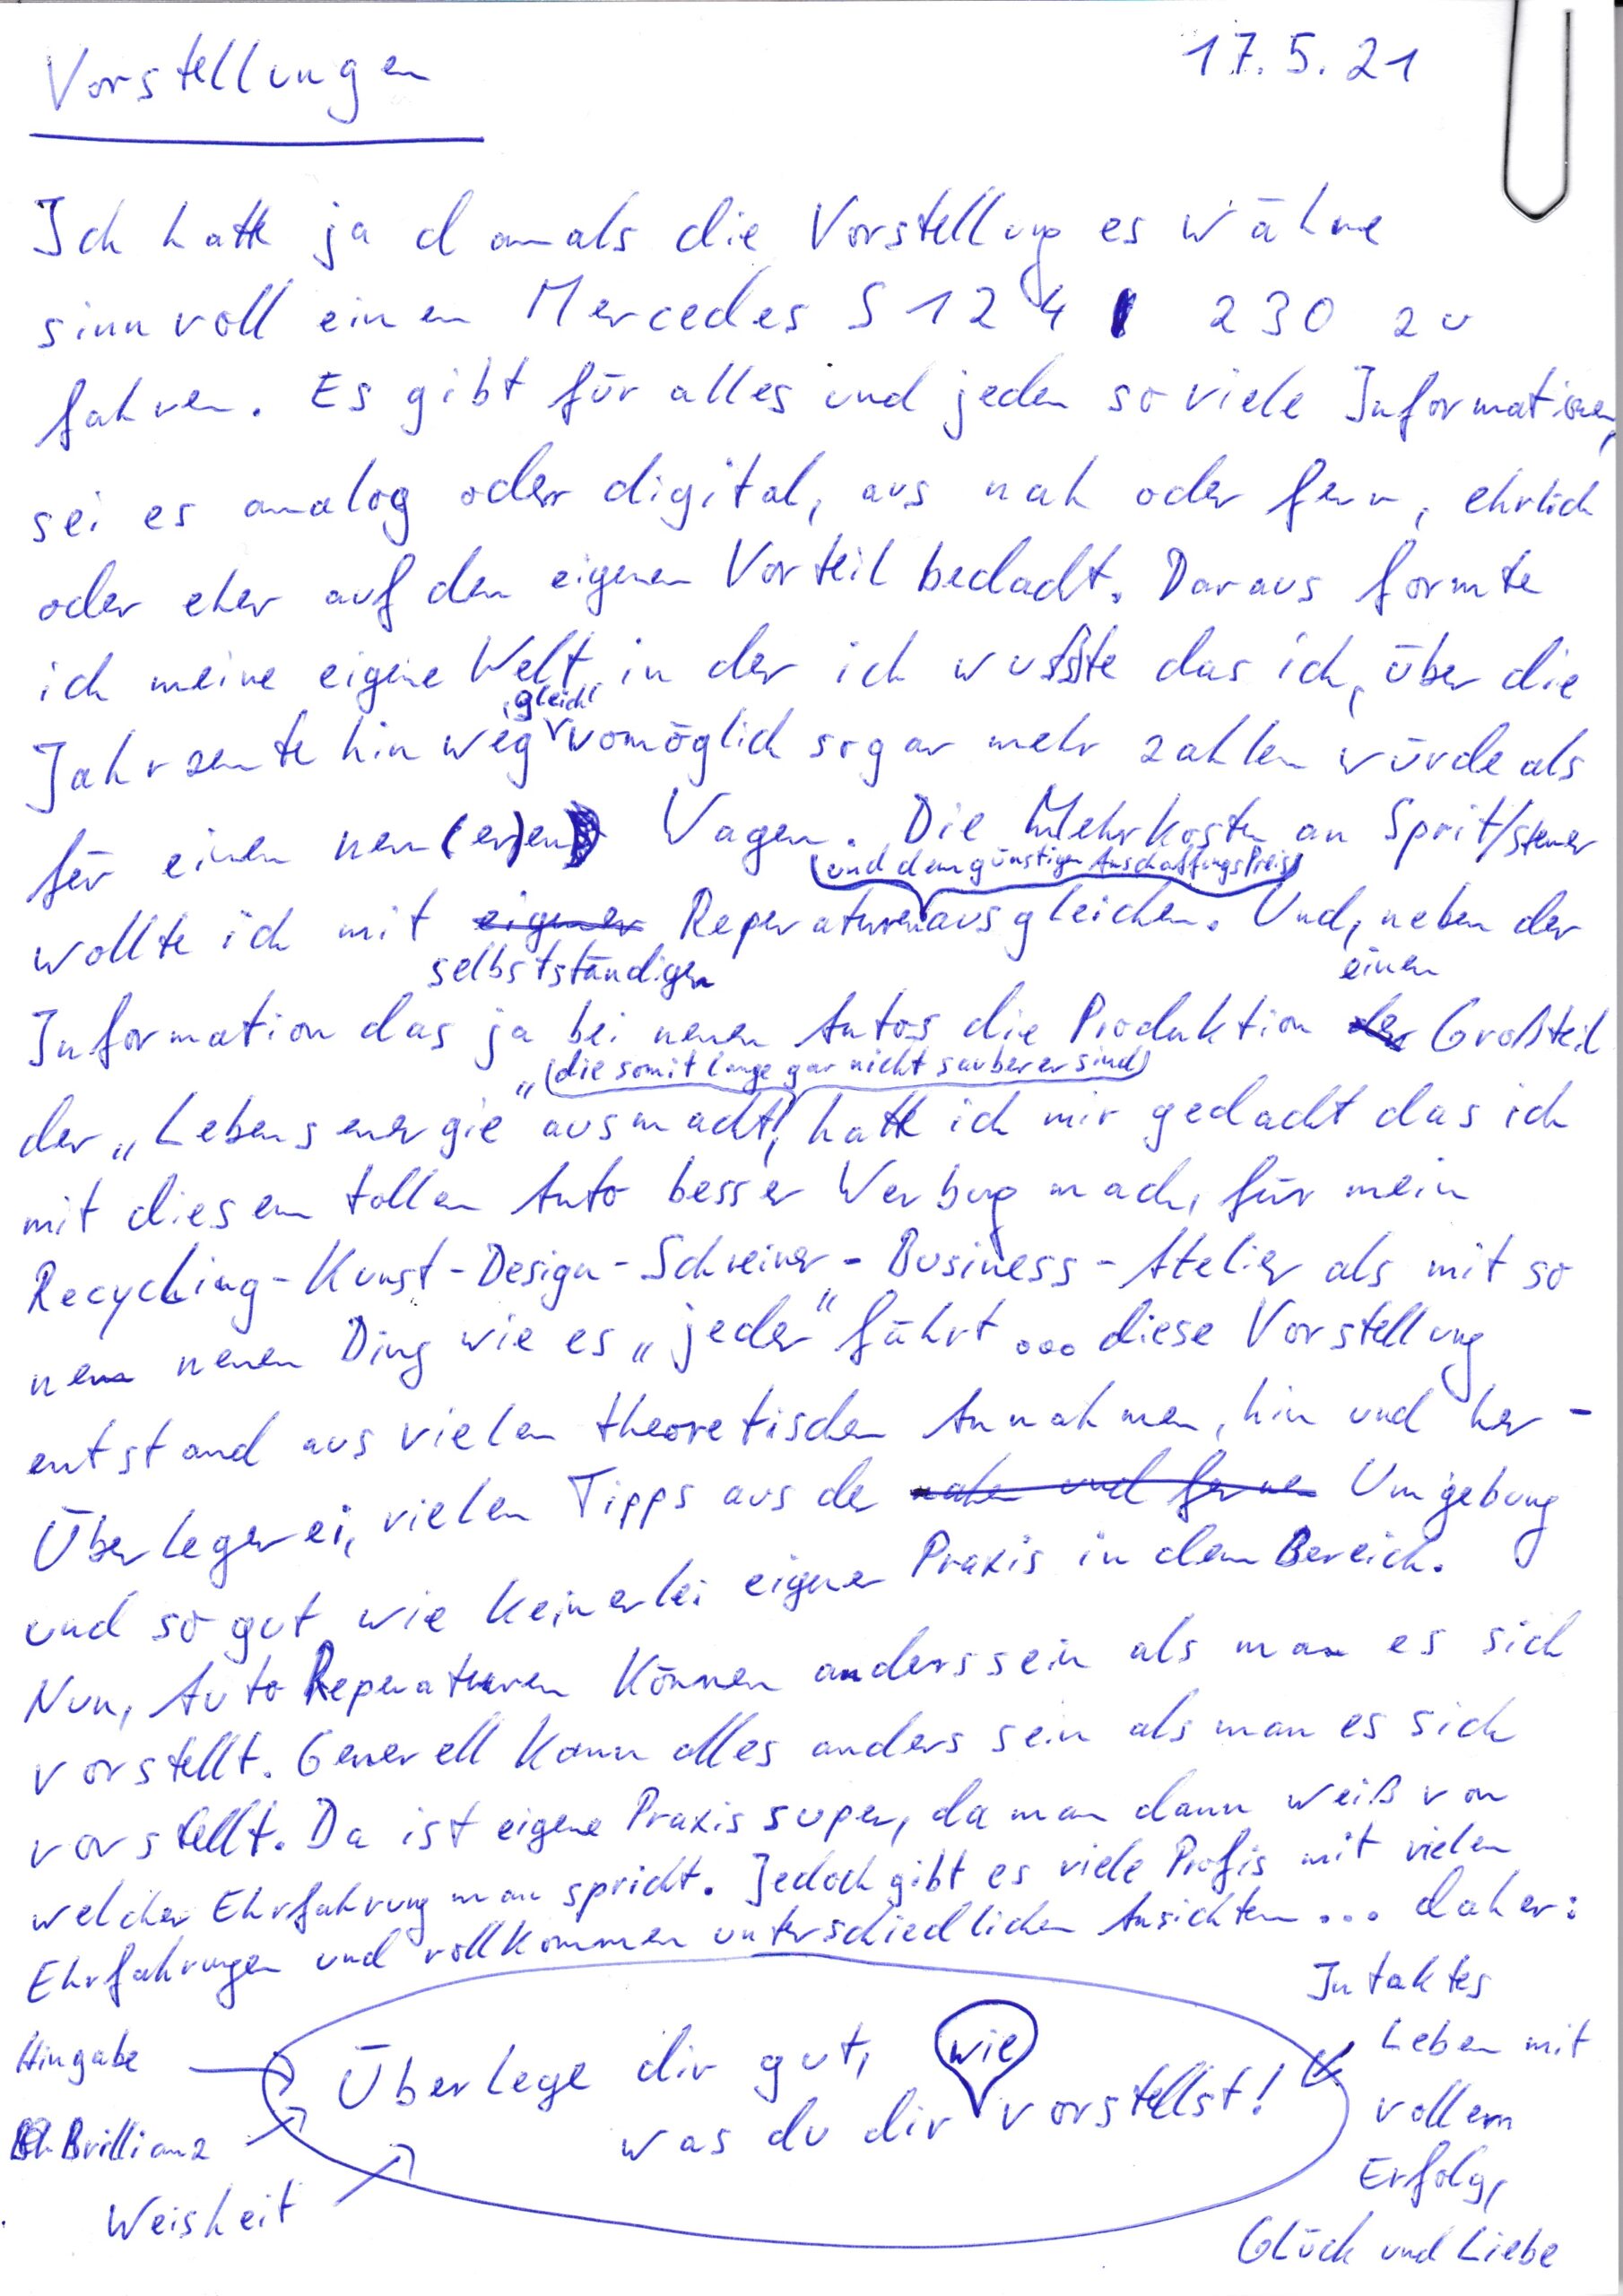 Vorstellungen
17.5.21
Ich hatte ja damals die Vorstellung es wähne
sinnvoll einen Mercedes S 124 230 zu
fahren. Es gibt für alles und jeden so viele Informationen,
sei es analog oder digital, aus nah oder fern, ehrlich
oder eher auf den eigenen Vorteil bedacht. Daraus formte
ich meine eigene Welt in der ich wusste das ich, über die
"gleich"
Jahrzente hinweg womöglich sogar mehr zahlen würde als
für einen neu(er)en Wagen. Die Mehrkosten an Sprit/Steuer
(und dem günstigen Anschaffungspreis)
wollte ich mit eigener Reperaturen ausgleichen. Und, neben der
selbstständigen
einen
Information das ja bei neuen Autos die Produktion der Großteil
(die somit lange gar nicht sauberer sind)
der „Lebensenergie" ausmacht, hatte ich mir gedacht das ich
mit diesem tollen Auto besser Werbung mach, für mein
Recycling-Kunst-Design-Schreiner-Business-Atelier als mit so
nem neuen Ding wie es „jeder" fährt ... diese Vorstellung
entstand aus vielen theoretischen Annahmen, hin und her-
Überlegerei, vielen Tipps aus der nahen und fernen Umgebung
und so gut wie keinerlei eigener Praxis in dem Bereich.
Nun, Auto Reperaturen können anders sein als man es sich
vorstellt. Generell kann alles anders sein als man es sich
vorstellt. Da ist eigene Praxis super, da man dann weiß von
welcher Ehrfahrung man spricht. Jedoch gibt es viele Profis mit vielen
Ehrfahrungen und vollkommen unterschiedlichen Ansichten... daher:
Überlege dir gut, wie
was du dir vorstellst!
Hingabe
Brillianz
Weisheit
Intaktes
Leben mit
vollem
Erfolg,
Glück und Liebe